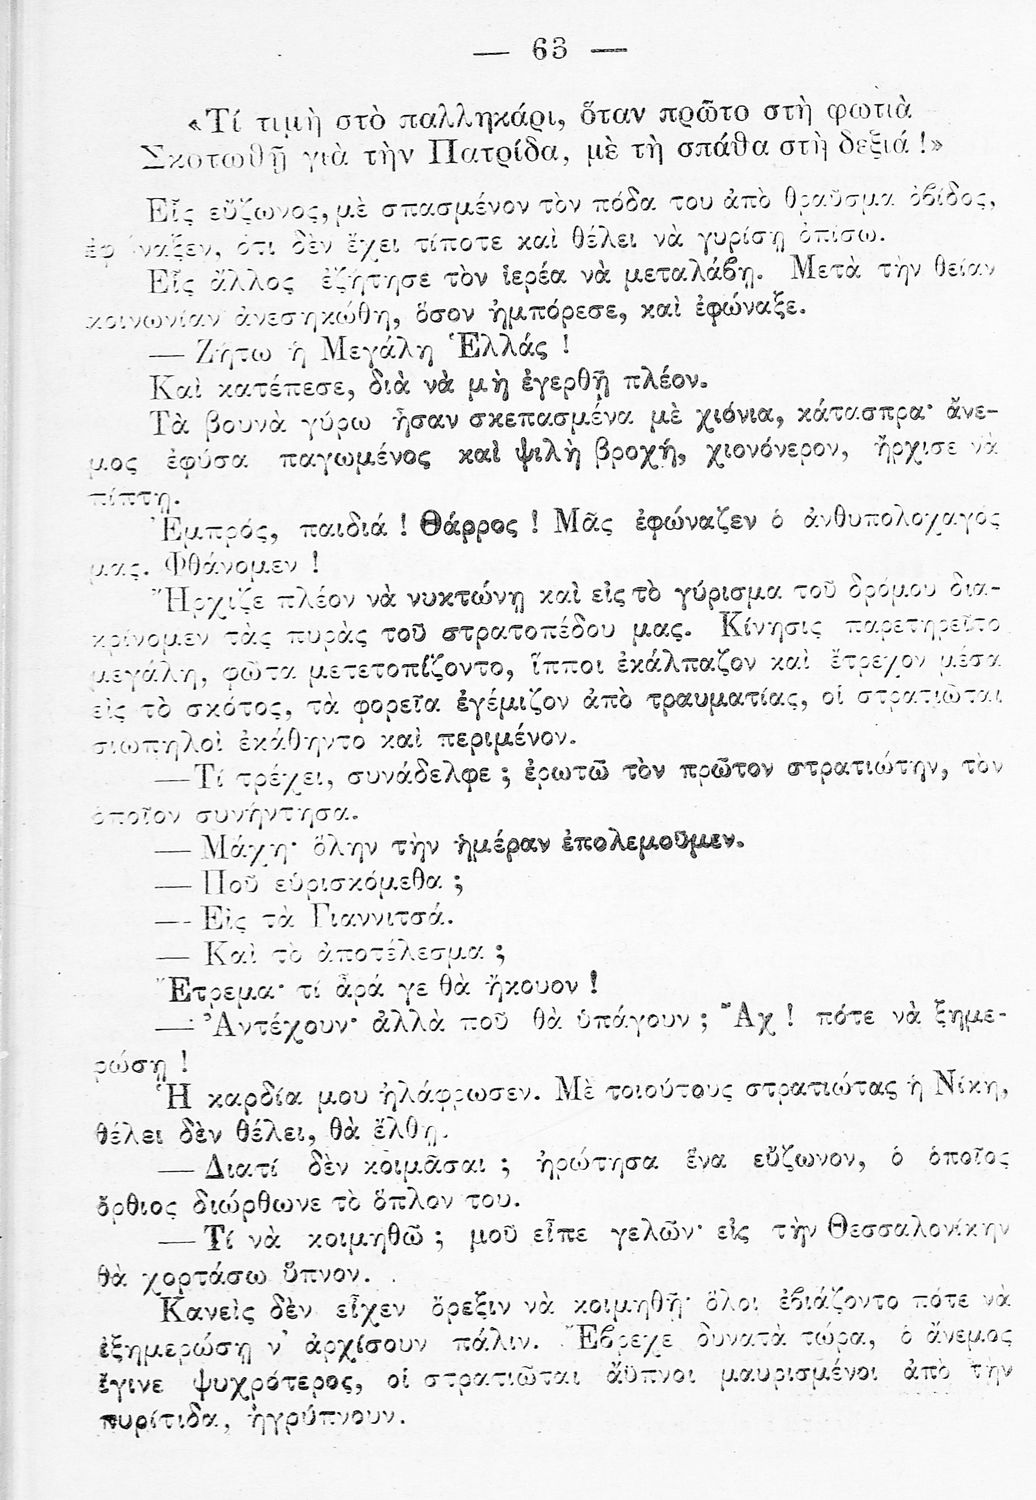 — 63 —
«Τί τιμὴ στὸ παλληκάρι, ὅταν πρῶτο στὴ φωτιὰ
Σκοτωθῇ γιὰ τὴν Πατρίδα, μὲ τὴ σπάθα στὴ δεξιά !»
Εἷς εὔζωνος, μὲ σπασμένον τὸν πόδα του ἀπὸ θραῦσμα ὀβίδος,
ὅτι δὲν ἔχει τίποτε καὶ θέλει νὰ γυρίσῃ ὀπίσω.
Εἷς ἄλλος ἐζήτησε τὸν ἱερέα νὰ μεταλάβῃ. Μετὰ τὴν θείαν
κοινωνίαν ἀνεσηκώθη, ὅσον ἠμπόρεσε, καὶ ἐφώναξε.
— Ζήτω ἡ Μεγάλη Ἑλλάς !
Καὶ κατέπεσε, διὰ νὰ μὴ ἐγερθῇ πλέον.
Τὰ βουνὰ γύρω ἦσαν σκεπασμένα μὲ χιόνια, κάτασπρα· ἄνε-
μος ἐφύσα παγωμένος καὶ ψιλὴ βροχή, χιονόνερον, ἤρχισε νὰ
πίπτῃ.
Ἐμπρός, παιδιά ! Θάρρος ! Μᾶς ἐφώναζεν ὁ ἀνθυπολοχαγὸς
μας. Φθάνομεν !
Ἤρχιζε πλέον νὰ νυκτώνῃ καὶ εἰς τὸ γύρισμα τοῦ δρόμου δια-
κρίνομεν τὰς πυρὰς τοῦ στρατοπέδου μας. Κίνησις παρετηρεῖτο
μεγάλη, φῶτα μετετοπίζοντο, ἵπποι ἐκάλπαζον καὶ ἔτρεχον μέσα
εἰς τὸ σκότος, τὰ φορεῖα ἐγέμιζον ἀπὸ τραυματίας, οἱ στρατιῶται
σιωπηλοὶ ἐκάθηντο καὶ περιμένον.
— Τί τρέχει, συνάδελφε ; ἐρωτῶ τὸν πρῶτον στρατιώτην, τὸν
ὁποῖον συνήντησα.
— Μάχη· ὅλην τὴν ἡμέραν ἐπολεμοῦμεν.
— Ποῦ εὑρισκόμεθα ;
— Εἰς τὰ Γιαννιτσά.
— Καὶ τὸ ἀποτέλεσμα ;
Ἔτρεμα· τί ἆρά γε θὰ ἤκουον !
— Ἀντέχουν· ἀλλὰ ποῦ θὰ ὑπάγουν ; Ἄχ ! πότε νὰ ξημε-
ρώσῃ !
Ἡ καρδία μου ἠλάφρωσεν. Μὲ τοιούτους στρατιώτας ἡ Νίκη,
θέλει δὲν θέλει, θὰ ἔλθῃ.
— Διατί δὲν κοιμᾶσαι ; ἠρώτησα ἕνα εὔζωνον, ὁ ὁποῖος
ὄρθιος διώρθωνε τὸ ὅπλον του.
— Τί νὰ κοιμηθῶ ; μοῦ εἶπε γελῶν· εἰς τὴν Θεσσαλονίκην
θὰ χορτάσω ὕπνον.
Κανεὶς δὲν εἶχεν ὄρεξιν νὰ κοιμηθῇ· ὅλοι ἐβιάζοντο πότε νὰ
ἐξημερώσῃ ν' ἀρχίσουν πάλιν. Ἔβρεχε δυνατὰ τώρα, ὁ ἄνεμος
ἔγινε ψυχρότερος, οἱ στρατιῶται ἄϋπνοι μαυρισμένοι ἀπὸ τὴν
πυρίτιδα, ἠγρύπνουν.